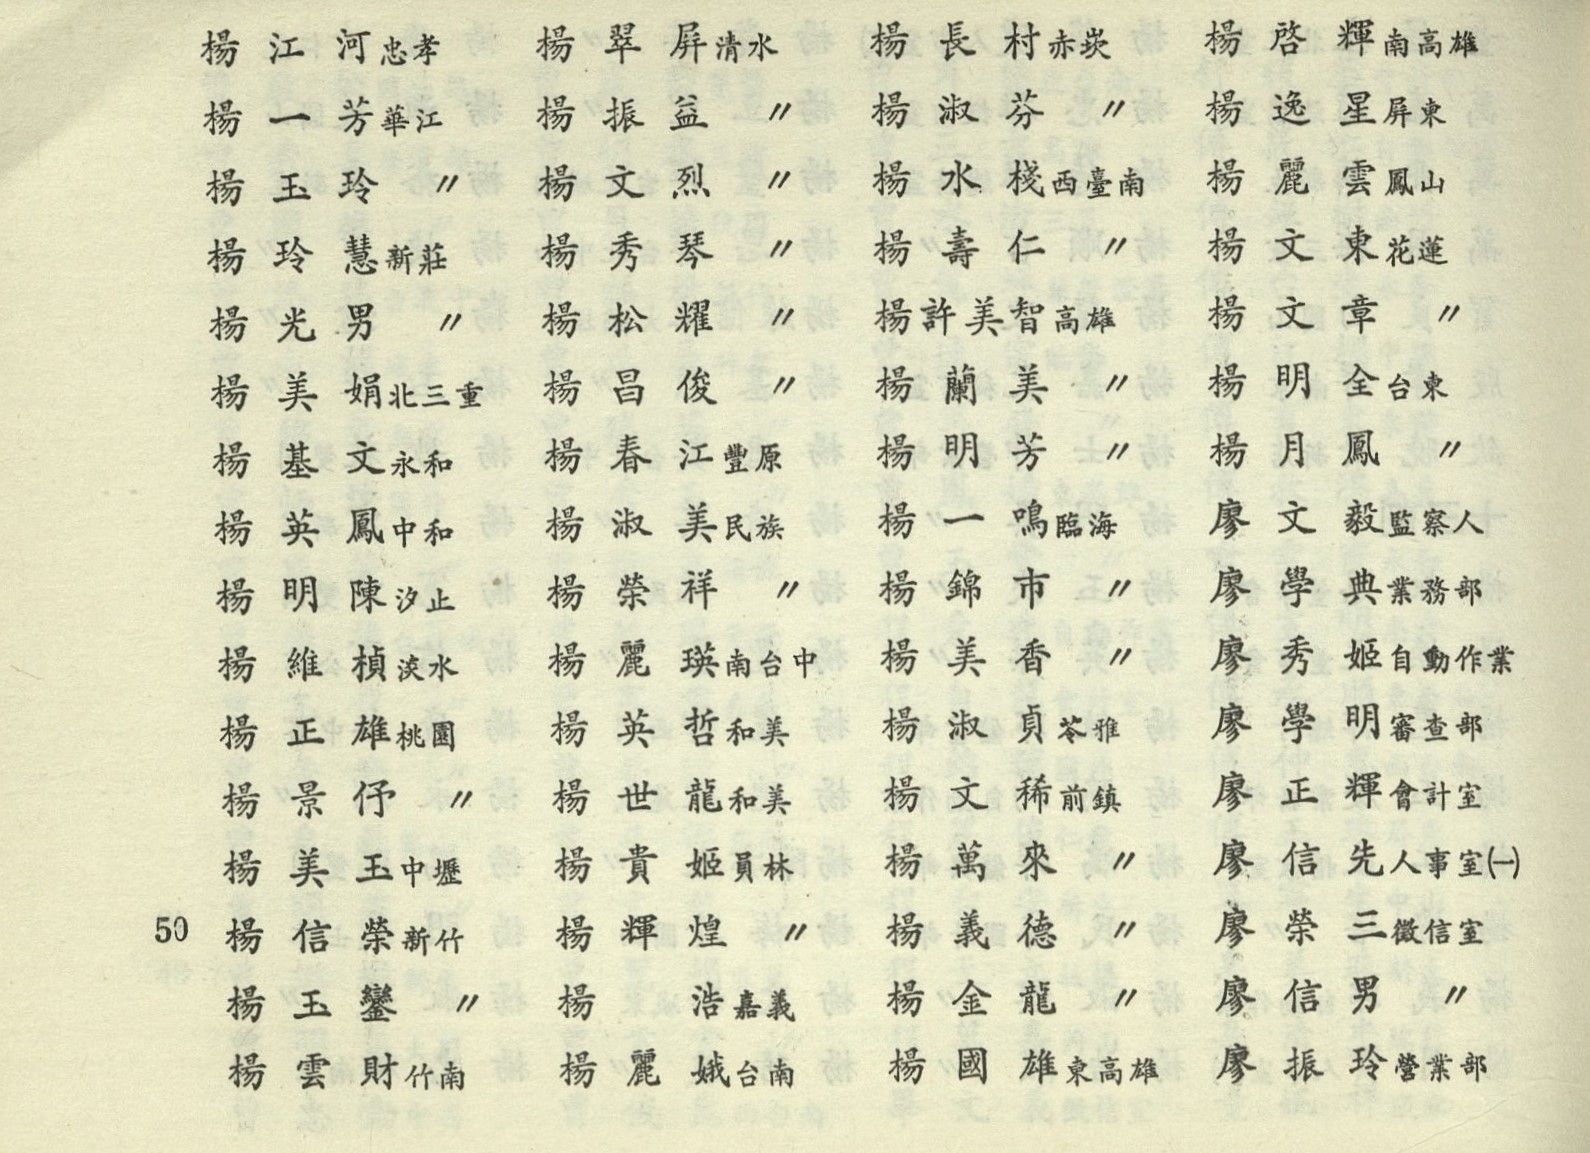 楊江河忠孝
楊一芳華江
楊玉玲〃
楊玲慧新莊
楊光男〃
楊美娟北三重
楊基文永和
楊英鳳中和
楊明陳汐止
楊維楨淡水
楊正雄桃園
楊景伃〃
楊美玉中壢
楊信榮新竹
楊玉鑾〃
楊雲財竹南
楊翠屏清水
楊振益〃
楊文烈〃
楊秀琴〃
楊松耀〃
楊昌俊〃
楊春江豐原
楊淑美民族
楊榮祥〃
楊麗瑛南台中
楊英哲和美
楊世龍和美
楊貴姬員林
楊輝煌〃
楊浩嘉義
楊麗娥台南
楊長村赤崁
楊淑芬〃
楊水棧西臺南
楊壽仁〃
楊許美智高雄
楊蘭美〃
楊明芳〃
楊一鳴臨海
楊錦市〃
楊美香〃
楊淑貞苓雅
楊文稀前鎮
楊萬來〃
楊義德〃
楊金龍〃
楊國雄東高雄
楊啓輝南高雄
楊逸星屏東
楊麗雲鳳山
楊文東花蓮
楊文章〃
楊明全台東
楊月鳳〃
廖文毅監察人
廖學典業務部
廖秀姬自動作業
廖學明審查部
廖正輝會計室
廖信先人事室㈠
廖榮三徵信室
廖信男〃
廖振玲營業部
50